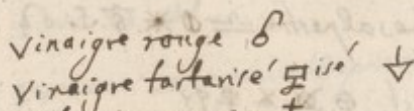 vinaigre rouge
vinaigre tartarisé isé